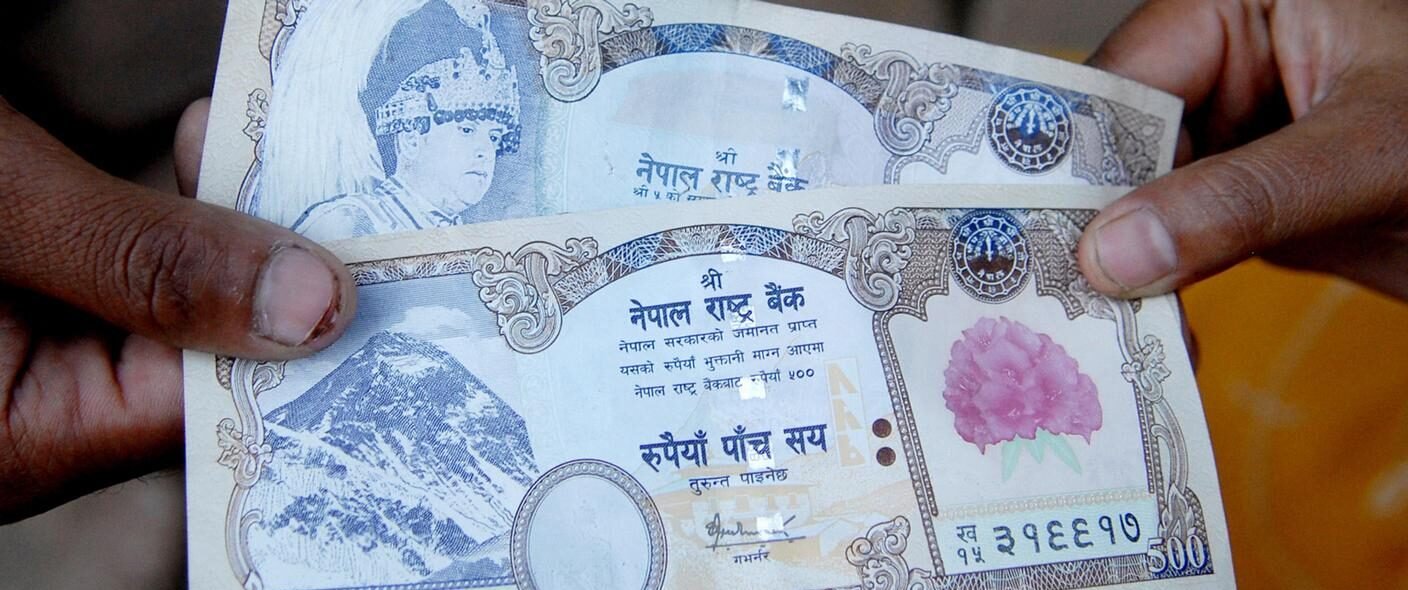 श्री
नेपाल राष्ट्र बैंक
श्री ५ को
नेपाल
श्री
नेपाल राष्ट्र बैंक
नेपाल सरकारको जमानत प्राप्त
यसको रुपैयाँ भुक्तानी माग्न आएमा
नेपाल राष्ट्र बैंकबाट रुपैयाँ ५००
रुपैयाँ पाँच सय
तुरुन्त पाइनेछ
गभर्नर
नेपाल
ख
१५ ३१६६१७
500